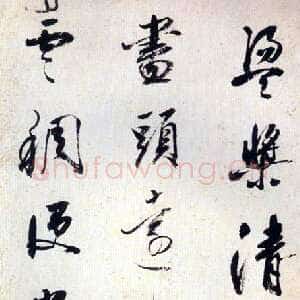 盪槳清
盡頭遠
雲稠便
Shufawang.cn